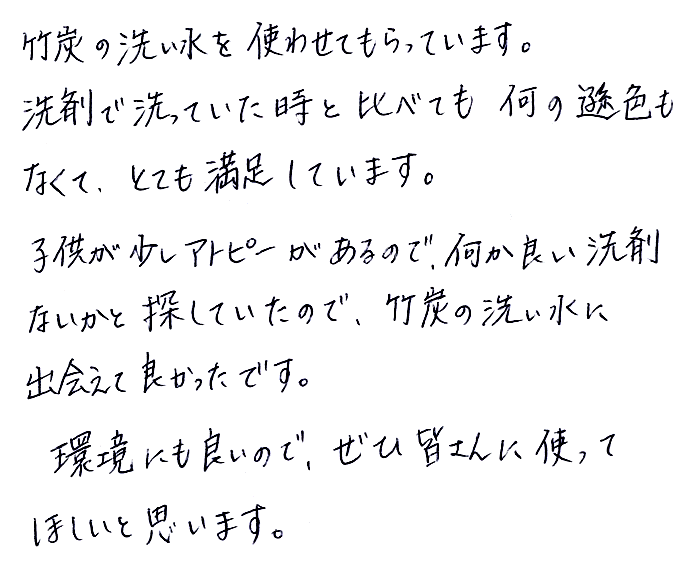 竹炭の洗い水を使わせてもらっています。
洗剤で洗っていた時と比べても何の遜色も
なくて、とても満足しています。
子供が少しアトピーがあるので、何か良い洗剤
ないかと探していたので、竹炭の洗い水に
出会えて良かったです。
環境にも良いので、ぜひ皆さんに使って
ほしいと思います。